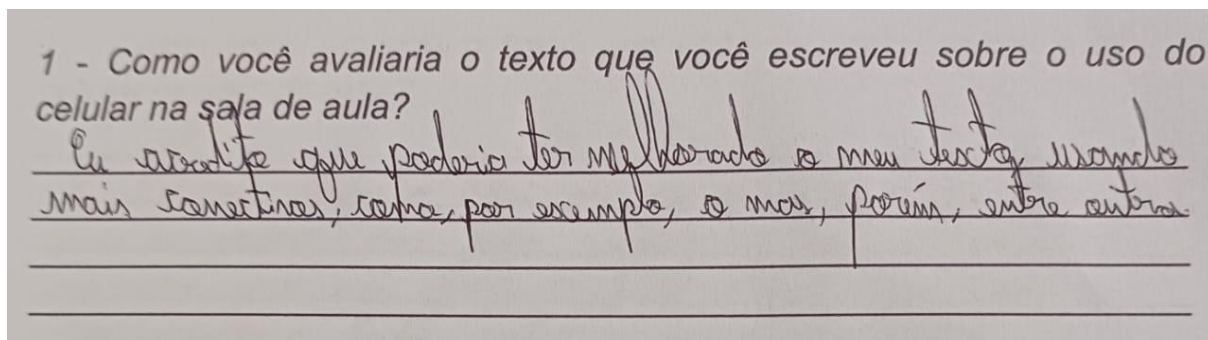 1 - Como você avaliaria o texto que você escreveu sobre o uso do
celular na sala de aula?
Eu acredito que poderia ter melhorado o meu texto, usando
mais conectivos, como, por exemplo, o mas, porém, entre outros.